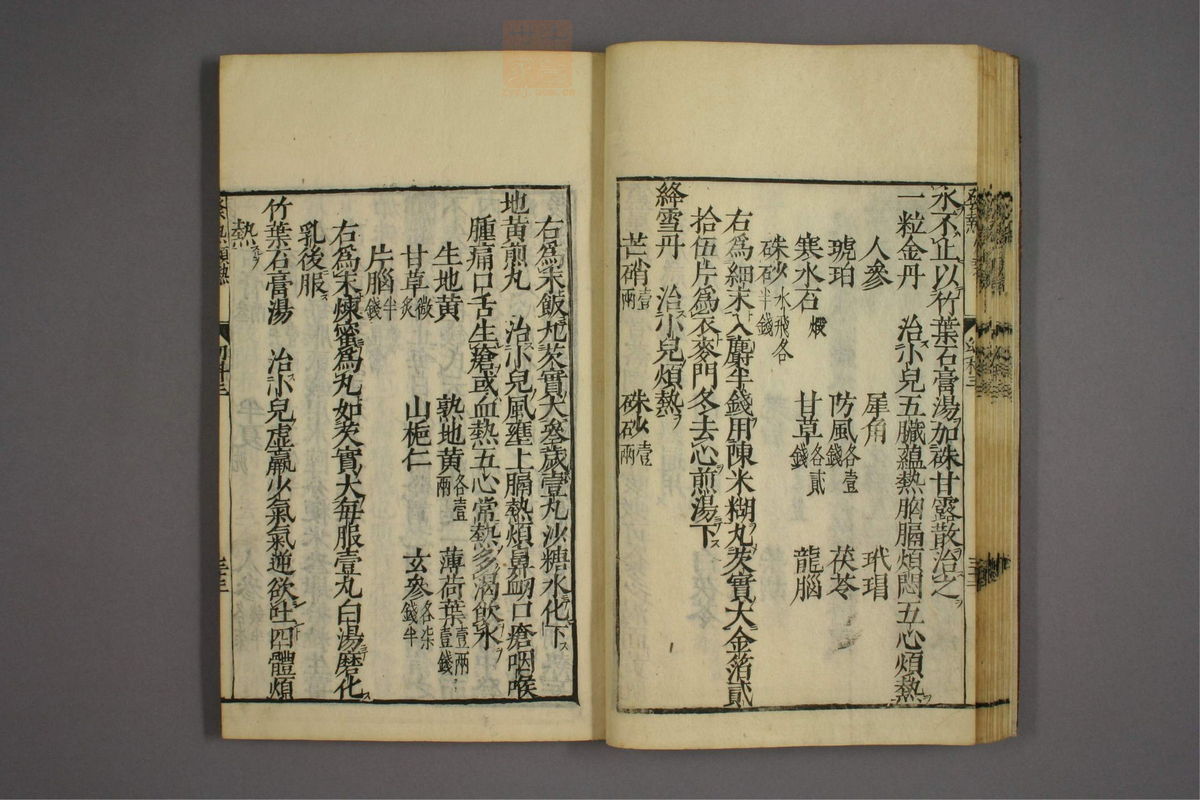 水不止以竹葉石膏湯加硃甘露散治之
一粒金丹 治小兒五臟蘊熱胸膈煩悶五心煩熱
人參 犀角 玳瑁
琥珀 防風各壹錢 茯苓
寒水石煅 甘草各貳錢 龍腦
硃砂水飛各半錢
右爲細末入麝半錢用陳米糊丸芡實大金箔貳
拾伍片爲衣麥門冬去心煎湯下
絳雪丹 治小兒煩熱
芒硝壹兩 硃砂壹兩
右爲末飯丸芡實大叄歲壹丸沙糖水化下
地黃煎丸 治小兒風壅上膈熱煩鼻衂口瘡咽喉
腫痛口舌生瘡或血熱五心常熱多渴飲水
生地黃 熟地黃各壹兩 薄荷葉壹兩壹錢
甘草微炙 山梔仁 玄參各柒錢半
片腦半錢
右爲末煉蜜爲丸如芡實大每服壹丸白湯磨化
乳後服
竹葉石膏湯 治小兒虛羸少氣氣逆欲吐四體煩
熱